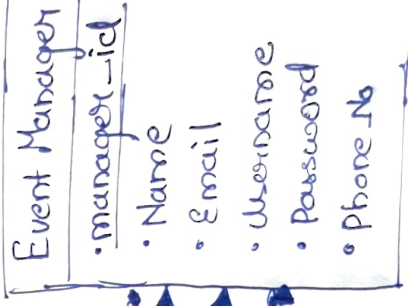 Event Manager
• manager_id
• Name
• Email
• Username
• Password
• Phone_No